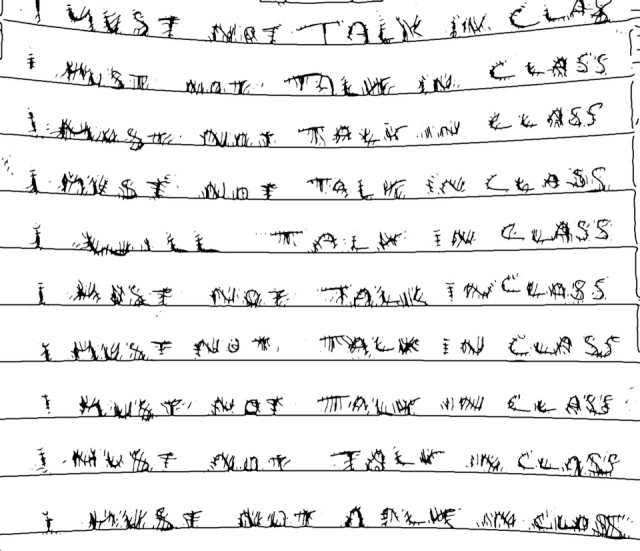 I MUST NOT TALK IN CLAS
I MUST NOT TALK IN CLASS
I MUST NOT TALK IN CLASS
I MUST NOT TALK IN CLASS
I WILL TALK IN CLASS
I MUST NOT TALK IN CLASS
I MUST NOT TALK IN CLASS
I MUST NOT TALK IN CLASS
I MUST NOT TALK IN CLASS
I MUST NOT IN CLASS